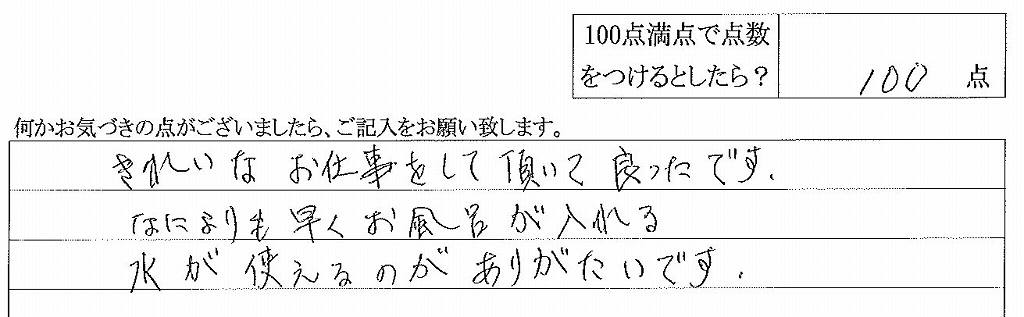 100点満点で点数
をつけるとしたら？
100 点
何かお気づきの点がございましたら、ご記入をお願い致します。
きれいな お仕事をして頂いて 良ったです.
なによりも早くお風呂が入れる
水が使えるのがありがたいです.